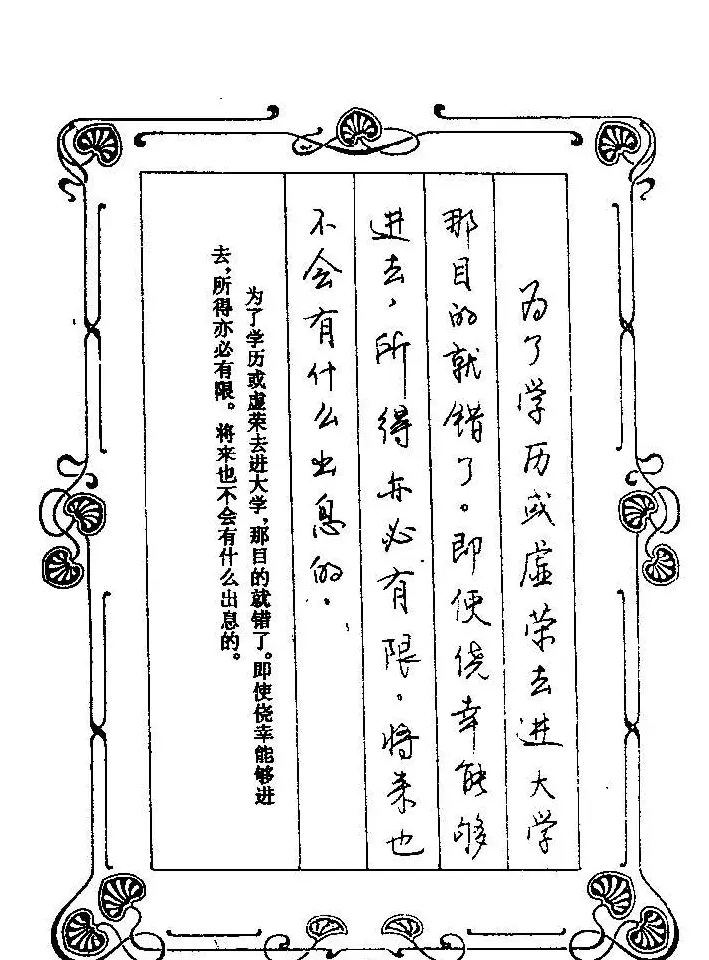 为了学历或虚荣去进大学
那目的就错了。即便侥幸能够
进去，所得亦必有限。将来也
不会有什么出息的。
为了学历或虚荣去进大学，那目的就错了。即使侥幸能够进
去，所得亦必有限。将来也不会有什么出息的。